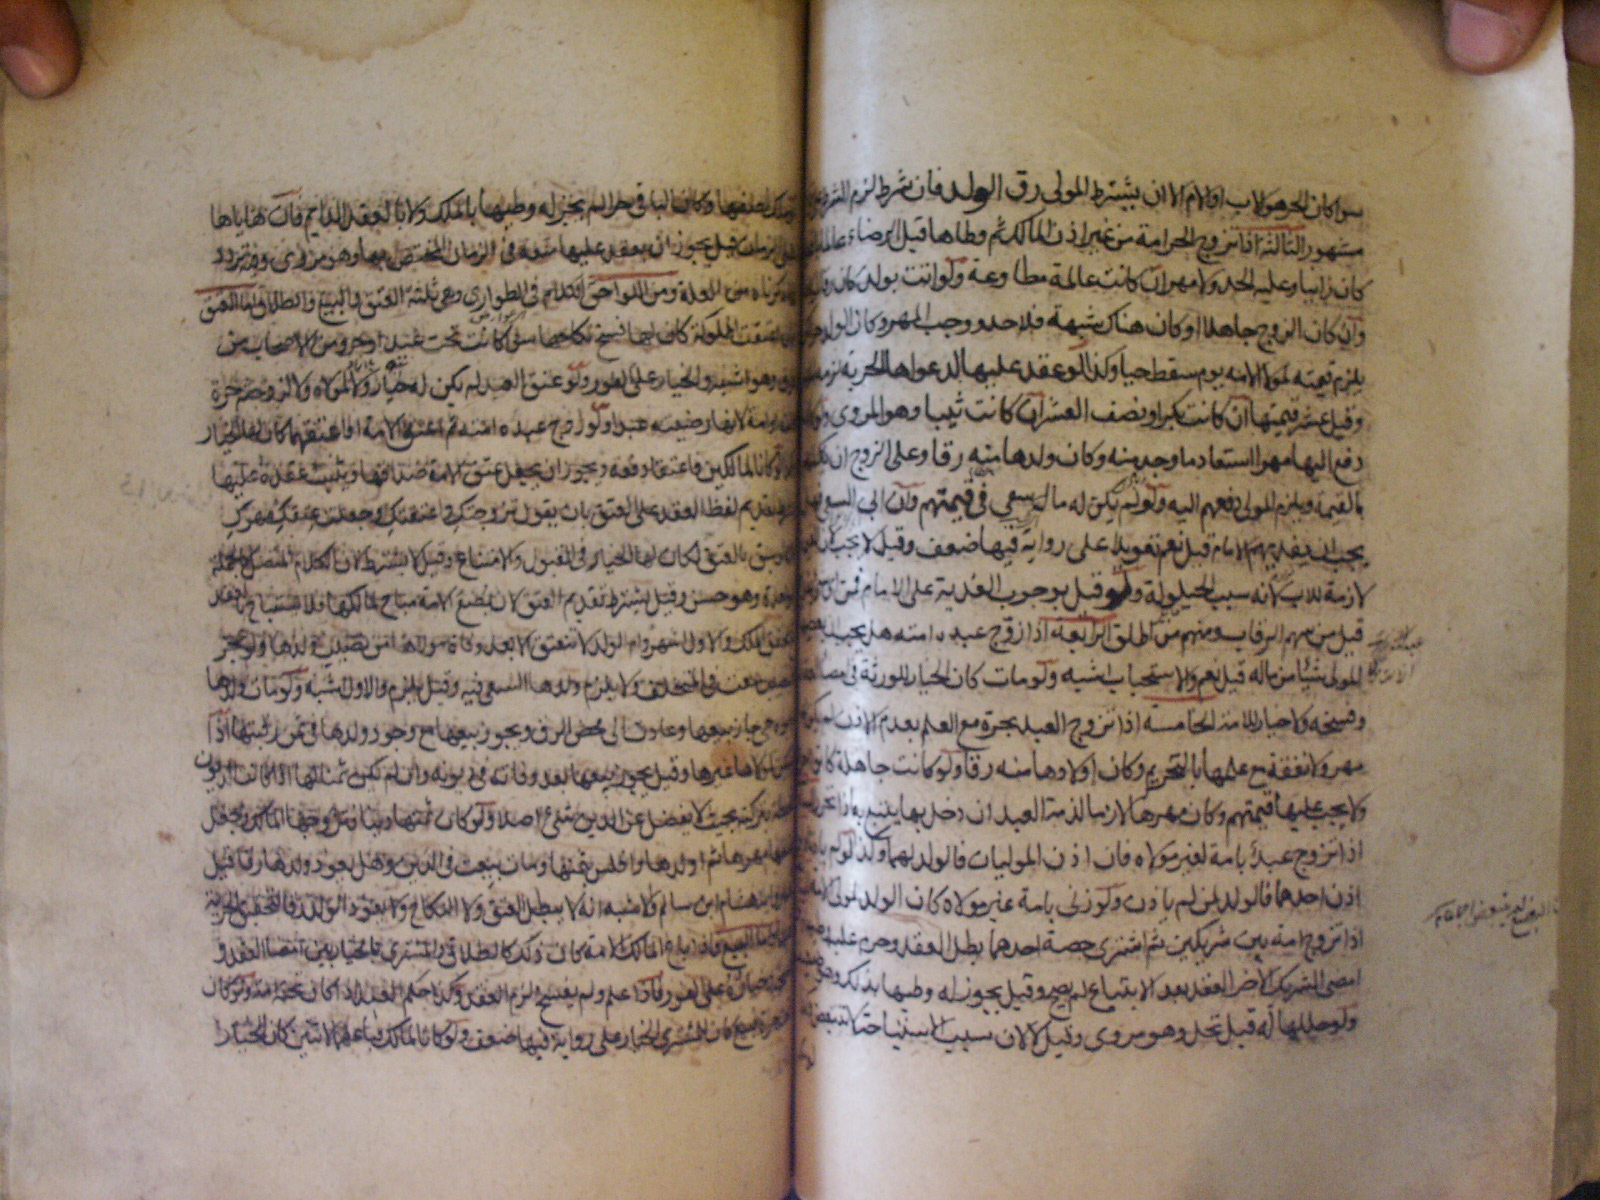 سواء كان الحر هو الاب او الام الا ان يشترط المولى رق الولد فان شرط لزم الشرط
مشهور الثالثة اذا تزوج الحر امة من غير اذن المالك ثم وطأها قبل الرضاء عالما
كان زانيا وعليه الحد ولا مهر ان كانت عالمة مطاوعة ولو اتت بولد كان رقا
وان كان الزوج جاهلا او كان هناك شبهة فلا حد ووجب المهر وكان الولد
يلزم قيمته لمولى الامه يوم سقط حيا وكذا لو عقد عليها لدعواها الحرية لزمه
وقيل عشر قيمتها ان كانت بكرا ونصف العشر ان كانت ثيبا وهو المروي ولو كان
دفع اليها مهرا استعاد ما وجد منه وكان ولدها منه رقا وعلى الزوج ان
بالقيمة ويلزم المولى دفعهم اليه ولو لم يكن له مال سعى في قيمتهم وان ابى السعي
يجب ان يفديهم الامام قيل نعم تعويلا على رواية فيها ضعف وقيل لا يجب
لازمة للاب لانه سبب الحيلولة ولو قيل بوجوب الفدية على الامام فمن
قيل من سهم الرقاب ومنهم من اطلق الرابعة اذا زوج عبده امته هل يجب
المولى شيئا من ماله قيل نعم والاستحباب اشبه ولو مات كان الخيار للورثة في
وفسخه ولا خيار للامة الخامسة اذا تزوج العبد بحرة مع العلم بعدم الاذن لم يكن
مهر ولا نفقة مع علمها بالتحريم وكان اولادها منه رقا ولو كانت جاهلة كانوا
ولا يجب عليها قيمتهم وكان مهرها لازما لذمة العبد ان دخل بها يتبع به اذا تحرر
اذا تزوج عبد بامة لغير مولاه فان اذن الموليان فالولد لهما وكذا لو لم
اذن احدهما فالولد لمن لم ياذن ولو زنى بامة غير مولاه كان الولد لمولى الامة
اذا تزوج امة بين شريكين ثم اشترى حصة احدهما بطل العقد وحرم عليه
امضى الشريك الاخر العقد بعد الابتياع لم يصح وقيل يجوز له وطيها بذلك وهو
ولو حللها له قيل تحل وهو مروي وقيل لا لان سبب الاستباحة لا يتبعض
ملك نصفها وكان الباقي حرا لم يجز له وطيها بالملك ولا بالعقد الدايم فان هاياها
على الزمان قيل يجوز ان يعقد عليها متعة في الزمان المختص بها وهو مروي وفيه تردد
من العلة ومن اللواحق الكلام في الطواري وهي ثلثة العتق والبيع والطلاق اما العتق
عتقت المملوكة كان لها فسخ نكاحها سواء كانت تحت عبد او حر ومن الاصحاب من
وهو اشبه والخيار على الفور ولو عتق العبد لم يكن له خيار ولا لمولاه ولا لزوجته حرة
او امة لانها رضيته عبدا ولو زوج عبده امته ثم اعتق الامة او اعتقهما كان لها الخيار
لو كانا لمالكين فاعتقا دفعة ويجوز ان يجعل عتق الامة صداقها ويثبت عقده عليها
تقديم لفظ العقد على العتق بان يقول تزوجتك واعتقتك وجعلت عتقك مهرك
سبق بالعتق لكان لها الخيار في القبول والامتناع وقيل لا يشترط لان الكلام المتصل كالجملة
وهو حسن وقيل يشترط تقديم العتق لان بضع الامة مباح لمالكها فلا يستباح بالعقد
الملك والاول اشهر وام الولد لا تنعتق الا بعد وفاة مولاها من نصيب ولدها ولو عجز
عن المتخلف ولا يلزم ولدها السعي فيه وقيل يلزم والاول اشبه ولو مات ولدها
حي جاز بيعها وعادت الى محض الرق ويجوز بيعها مع وجود ولدها في ثمن رقبتها اذا
غيرها وقيل يجوز بيعها بعد وفاته في ديونه وان لم تكن ثمنا لها اذا كانت الديون
بتركته بحيث لا يفضل عن الدين شيء اصلا ولو كان ثمنها دينا فتزوجها المالك وجعل
مهرها ثم اولدها وافلس بثمنها ومات بيعت في الدين وهل يعود ولدها رقا قيل
هشام ابن سالم والاشبه انه لا يبطل العتق ولا النكاح ولا يعود الولد رقا لتحقق الحرية
اما البيع فاذا باع المالك الامة كان ذلك كالطلاق والمشتري بالخيار بين امضاء العقد و
خياره على الفور فاذا علم ولم يفسخ لزم العقد وكذا حكم العبد اذا كان تحته امة ولو كان
كان للمشتري الخيار على رواية فيها ضعف ولو كانا لمالك فباعهما لاثنين كان الخيار